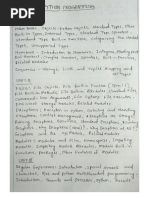 PYTHON PROGRAMMING
Python Objects, Standard Types, Other
Built-in Types, Internal Types, Standard Type Operators
Standard Type Built-in Functions,
Types, Unsupported Types
Numbers - Introduction to Numbers, Integers, Floating Point
Real Numbers, Complex Numbers, Operators, Built-in
Functions, Related Modules
Sequences - Strings, Lists and Tuples, Mapping and
Set Types
UNIT-II
FILES: File Objects, File Built-in Function [open()],
File Built-in Methods, File Built-in Attributes, Standard Files,
Command-line Arguments, File System, File Execution,
Persistent Storage Modules, Related Modules
Exceptions: Exceptions in Python, Detecting and Handling
Exceptions, Context Management, Exceptions as Strings,
Raising Exceptions, Assertions, Standard Exceptions, Creating
Exceptions, Why Exceptions (Now)?, Why Exceptions at All?,
Exceptions and the sys Module, Related Modules
Modules: Modules and Files, Namespaces, Importing Modules,
Importing Module Attributes, Module Built-in
Functions, Packages, Other Features of Modules
UNIT-III
Regular Expressions: Introduction, Special Symbols and
Characters, Res and Python Multithreaded Programming:
Introduction, Threads and Processes, Python, Threads,